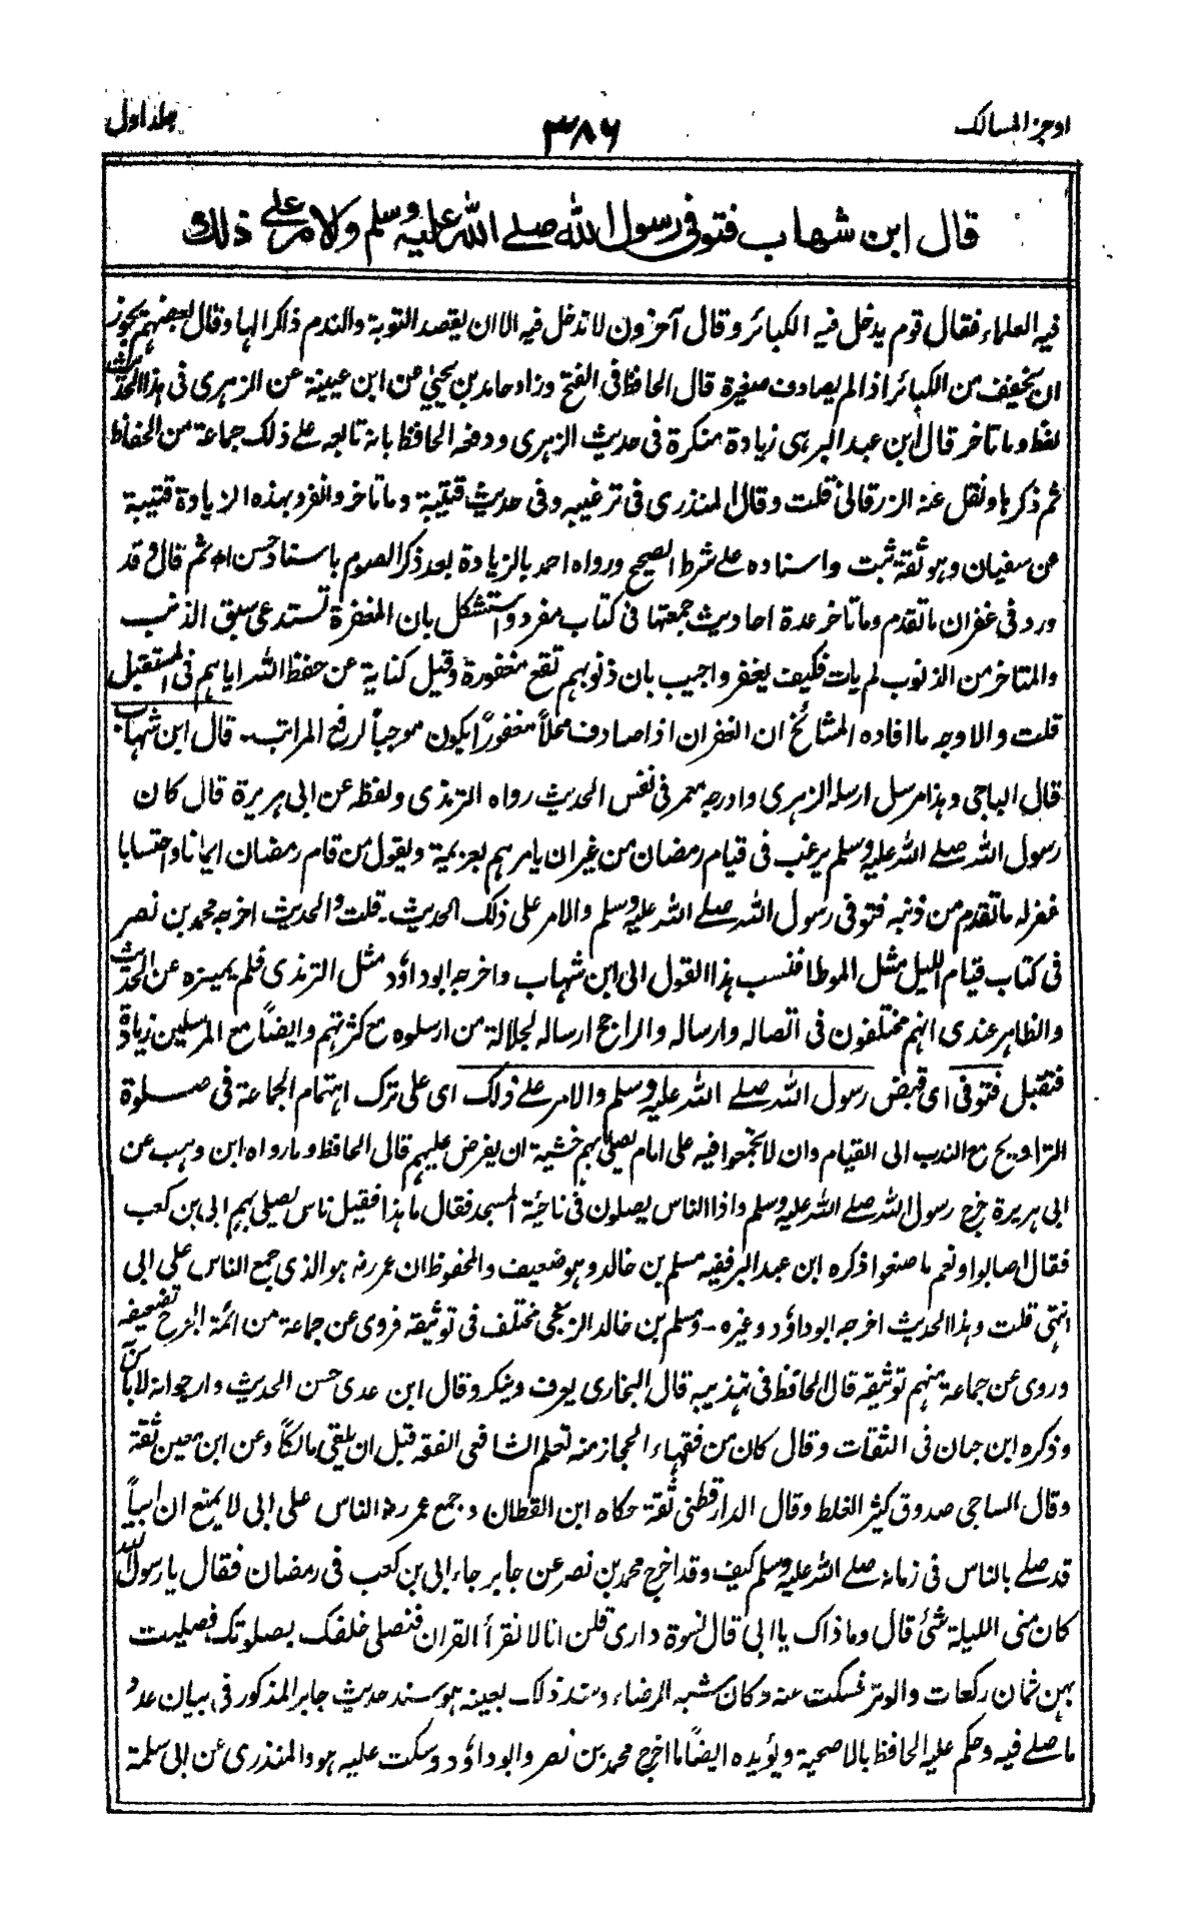 اوجز المسالك
۳۸۶
جلد اول
قال ابن شهاب فتوفى رسول الله صلے الله عليه وسلم والامر على ذلك
فيه العلماء فقال قوم يدخل فيه الكبائر وقال آخرون لا تدخل فيه الا ان يقصد التوبة والندم ذاكرا لها وقال بعضهم يجوز
ان يخفف من الكبائر اذا لم يصادف صغيرة قال الحافظ فى الفتح وزاد حامد بن يحيى عن ابن عيينة عن الزهرى فى هذا الحديث
لفظ وما تاخر قال ابن عبد البر هى زيادة منكرة فى حديث الزهرى ودفعه الحافظ بانه تابعه على ذلك جماعة من الحفاظ
ثم ذكرها ونقل عنه الزرقانى قلت وقال المنذرى فى ترغيبه وفى حديث قتيبة وما تاخر وانفرد بهذه الزيادة قتيبة
عن سفيان وهو ثقة ثبت واسناده على شرط الصحيح ورواه احمد بالزيادة بعد ذكر الصوم باسناد حسن اه ثم قال وقد
ورد فى غفران ما تقدم وما تاخر عدة احاديث جمعتها فى كتاب مفرد واستشكل بان المغفرة تستدعى سبق الذنب
والمتاخر من الذنوب لم يات فكيف يغفر واجيب بان ذنوبهم تقع مغفورة وقيل كناية عن حفظ الله اياهم فى المستقبل
قلت والاوجه ما افاده المشائخ ان الغفران اذا صادف محلاً مغفوراً يكون موجباً لرفع المراتب۔ قال ابن شهاب
قال الباجى وهذا مرسل ارسله الزهرى وادرجه معمر فى نفس الحديث رواه الترمذى ولفظه عن ابى هريرة قال كان
رسول الله صلے الله عليه وسلم يرغب فى قيام رمضان من غير ان يامرهم بعزيمة ويقول من قام رمضان ايمانا واحتسابا
غفر له ما تقدم من ذنبه فتوفى رسول الله صلے الله عليه وسلم والامر على ذلك الحديث۔ قلت والحديث اخرجه محمد بن نصر
فى كتاب قيام الليل مثل الموطا فنسب هذا القول الى ابن شهاب واخرجه ابوداؤد مثل الترمذى فلم يميزه عن الحديث
والظاهر عندى انهم مختلفون فى اتصاله وارساله والراجح ارساله لجلالة من ارسلوه مع كثرتهم وايضاً مع المرسلين زيادة
فتقبل فتوفى اى قبض رسول الله صلے الله عليه وسلم والامر علے ذلك اى على ترك اهتمام الجماعة فى صلوة
التراويح مع الندب الى القيام وان لا يجمعوا فيه على امام يصلى بهم خشية ان يفرض عليهم قال الحافظ وما رواه ابن وهب عن
ابى هريرة خرج رسول الله صلے الله عليه وسلم واذا الناس يصلون فى ناحية المسجد فقال ما هذا فقيل ناس يصلى بهم ابى بن كعب
فقال اصابوا ونعم ما صنعوا ذكره ابن عبد البر ففيه مسلم بن خالد وهو ضعيف والمحفوظ ان عمر رضہ هو الذى جمع الناس على ابى
انتهى قلت وهذا الحديث اخرجه ابوداؤد وغيره۔ ومسلم بن خالد الزنجى مختلف فى توثيقه فروى عن جماعة من ائمة الجرح تضعيفه
وروى عن جماعة منهم توثيقه قال الحافظ فى تهذيبه قال البخارى يعرف وينكر وقال ابن عدى حسن الحديث وارجو انه لا باس به
وذكره ابن حبان فى الثقات وقال كان من فقهاء الحجاز منه تعلم الشافعى الفقه قبل ان يلقى مالكاً وعن ابن معين ثقة
وقال الساجى صدوق كثير الغلط وقال الدارقطنى ثقة حكاه ابن القطان وجمع عمر رضہ الناس على ابى لا يمنع ان ابياً
قد صلے بالناس فى زمانه صلے الله عليه وسلم كيف وقد اخرج محمد بن نصر عن جابر جاء ابى بن كعب فى رمضان فقال يا رسول الله
كان منى الليلة شئ قال وما ذاك يا ابى قال نسوة دارى قلن انا لا نقرأ القران فنصلى خلفك بصلوتك فصليت
بهن ثمان ركعات والوتر فسكت عنه وكان شبه الرضاء وسند ذلك بعينه هو سند حديث جابر المذكور فى بيان عدد
ما صلے فيه وحكم عليه الحافظ بالاصحية ويؤيده ايضاً ما اخرج محمد بن نصر وابوداؤد وسكت عليه هو والمنذرى عن ابى سلمة